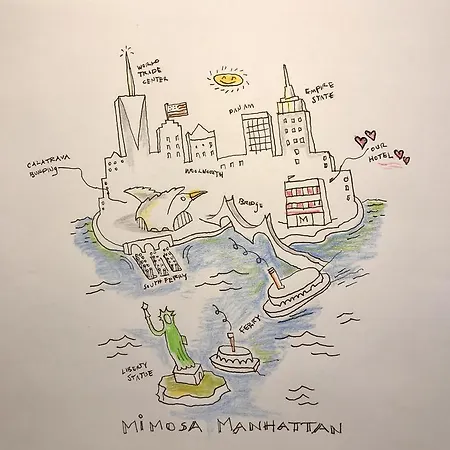 WORLD
TRADE
CENTER
PANAM
EMPIRE
STATE
CALATRAVA
BUILDING
WOOLWORTH
OUR
HOTEL
BRIDGE
M
SOUTH FERRY
FERRY
LIBERTY
STATUE
MIMOSA MANHATTAN